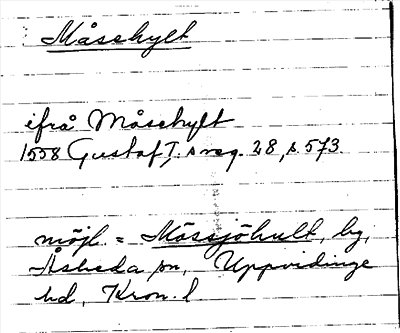 Måsehylt
ifrå Måsehylt
1558 Gustaf I:s reg. 28, s. 573.
möjl. = Mössjöhult, by,
Åseda sn, Uppvidinge
hd, Kron. l